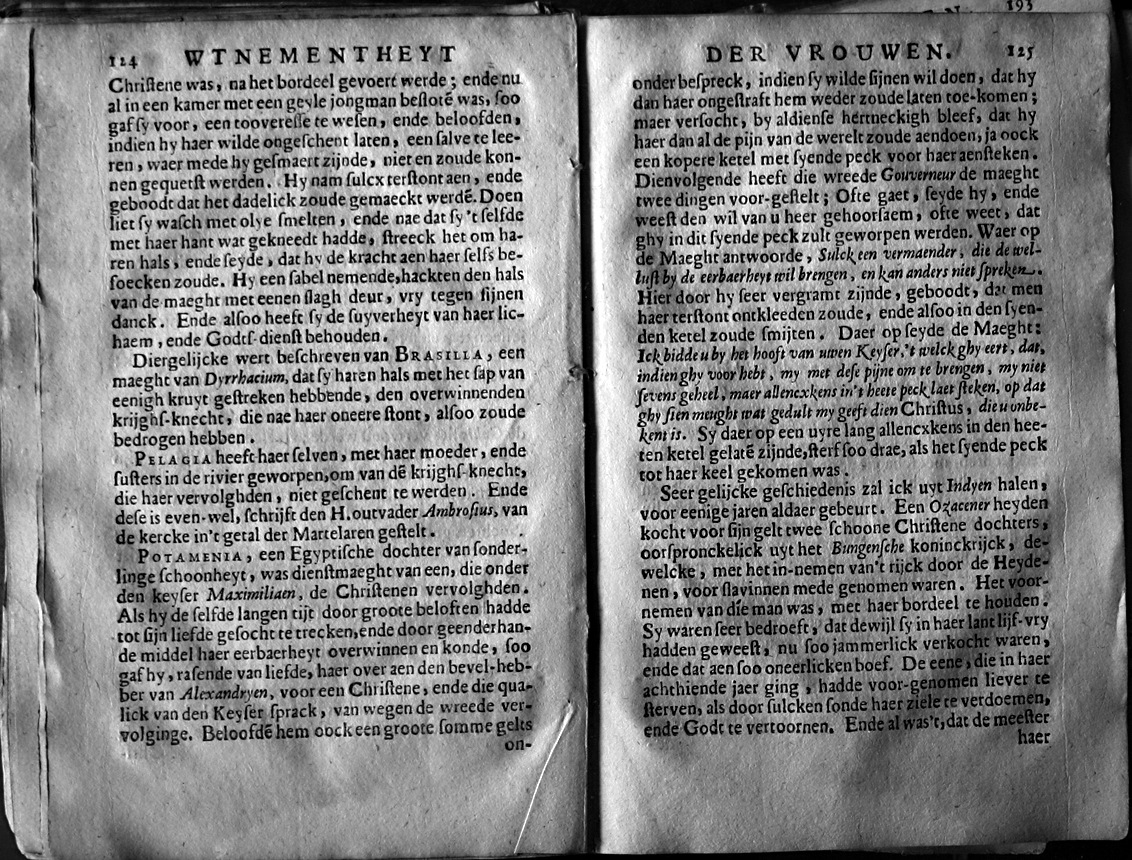 124 WTNEMENTHEYT
Chriſtene was, na het bordeel gevoert werde; ende nu
al in een kamer met een geyle jongman beſlotē was, ſoo
gaf ſy voor, een tooverеſſe te weſen, ende beloofden,
indien hy haer wilde ongeſchent laten, een ſalve te lee-
ren, waer mede hy geſmaert zijnde, niet en zoude kon-
nen gequetſt werden. Hy nam ſulcx terſtont aen, ende
geboodt dat het dadelick zoude gemaeckt werdē. Doen
liet ſy waſch met olye ſmelten, ende nae dat ſy 't ſelfde
met haer hant wat gekneedt hadde, ſtreeck het om ha-
ren hals, ende ſeyde, dat hy de kracht aen haer ſelfs be-
ſoecken zoude. Hy een ſabel nemende, hackten den hals
van de maeght met eenen ſlagh deur, vry tegen ſijnen
danck. Ende alſoo heeft ſy de ſuyverheyt van haer lic-
haem, ende Godts-dienſt behouden.
Diergelijcke wert beſchreven van BRASILLA, een
maeght van Dyrrhacium, dat ſy haren hals met het ſap van
eenigh kruyt geſtreken hebbende, den overwinnenden
krijghſ-knecht, die nae haer oneere ſtont, alſoo zoude
bedrogen hebben.
PELAGIA heeft haer ſelven, met haer moeder, ende
ſuſters in de rivier geworpen, om van dē krijghſ-knecht,
die haer vervolghden, niet geſchent te werden. Ende
deſe is even-wel, ſchrijft den H. outvader Ambroſius, van
de kercke in't getal der Martelaren geſtelt.
POTAMENIA, een Egyptiſche dochter van ſonder-
linge ſchoonheyt, was dienſtmaeght van een, die onder
den keyſer Maximiliaen, de Chriſtenen vervolghden.
Als hy de ſelfde langen tijt door groote beloften hadde
tot ſijn liefde geſocht te trecken, ende door geenderhan-
de middel haer eerbaerheyt overwinnen en konde, ſoo
gaf hy, raſende van liefde, haer over aen den bevel-heb-
ber van Alexandryen, voor een Chriſtene, ende die qua-
lick van den Keyſer ſprack, van wegen de wreede ver-
volginge. Beloofdē hem oock een groote ſomme gelts
on-
193
DER VROUWEN. 125
onder beſpreck, indien ſy wilde ſijnen wil doen, dat hy
dan haer ongeſtraft hem weder zoude laten toe-komen;
maer verſocht, by aldienſe hertneckigh bleef, dat hy
haer dan al de pijn van de werelt zoude aendoen, ja oock
een kopere ketel met ſyende peck voor haer aenſteken.
Dienvolgende heeft die wreede Gouverneur de maeght
twee dingen voor-geſtelt; Ofte gaet, ſeyde hy, ende
weeſt den wil van u heer gehoorſaem, ofte weet, dat
ghy in dit ſyende peck zult geworpen werden. Waer op
de Maeght antwoorde, Sulck een vermaender, die de wel-
luſt by de eerbaerheyt wil brengen, en kan anders niet ſpreken.
Hier door hy ſeer vergramt zijnde, geboodt, dat men
haer terſtont ontkleeden zoude, ende alſoo in den ſyen-
den ketel zoude ſmijten. Daer op ſeyde de Maeght:
Ick bidde u by het hooft van uwen Keyſer, 't welck ghy eert, dat,
indien ghy voor hebt, my met deſe pijne om te brengen, my niet
ſevens geheel, maer allencxkens in't heete peck laet ſteken, op dat
ghy ſien meught wat gedult my geeft dien Chriſtus, die u onbe-
kent is. Sy daer op een uyre lang allencxkens in den hee-
ten ketel gelatē zijnde, ſterf ſoo drae, als het ſyende peck
tot haer keel gekomen was.
Seer gelijcke geſchiedenis zal ick uyt Indyen halen,
voor eenige jaren aldaer gebeurt. Een Ozacener heyden
kocht voor ſijn gelt twee ſchoone Chriſtene dochters,
oorſpronckelick uyt het Bungenſche koninckrijck, de-
welcke, met het in-nemen van't rijck door de Heyde-
nen, voor ſlavinnen mede genomen waren. Het voor-
nemen van die man was, met haer bordeel te houden.
Sy waren ſeer bedroeft, dat dewijl ſy in haer lant lijf-vry
hadden geweeſt, nu ſoo jammerlick verkocht waren,
ende dat aen ſoo oneerlicken boef. De eene, die in haer
achthiende jaer ging, hadde voor-genomen liever te
ſterven, als door ſulcken ſonde haer ziele te verdoemen,
ende Godt te vertoornen. Ende al was't, dat de meeſter
haer